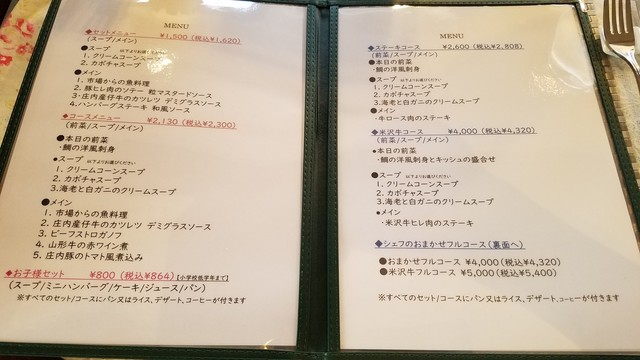 MENU
◆セットメニュー ¥1,500 (税込¥1,620)
(スープ/メイン)
●スープ 以下よりお選びください
1. クリームコーンスープ
2. カボチャスープ
●メイン
1. 市場からの魚料理
2. 豚ヒレ肉のソテー 粒マスタードソース
3. 庄内産仔牛のカツレツ デミグラスソース
4. ハンバーグステーキ 和風ソース
◆コースメニュー ¥2,130 (税込¥2,300)
(前菜/スープ/メイン)
●本日の前菜
・鯛の洋風刺身
●スープ 以下よりお選びください
1. クリームコーンスープ
2. カボチャスープ
3.海老と白ガニのクリームスープ
●メイン
1. 市場からの魚料理
2. 庄内産仔牛のカツレツ デミグラスソース
3. ビーフストロガノフ
4. 山形牛の赤ワイン煮
5. 庄内豚のトマト風煮込み
◆お子様セット ¥800 (税込¥864)【小学校低学年まで】
(スープ/ミニハンバーグ/ケーキ/ジュース/パン)
※すべてのセット/コースにパン又はライス、デザート、コーヒーが付きます
MENU
◆ステーキコース ¥2,600 (税込¥2,808)
(前菜/スープ/メイン)
●本日の前菜
・鯛の洋風刺身
●スープ 以下よりお選びください
1. クリームコーンスープ
2. カボチャスープ
3.海老と白ガニのクリームスープ
●メイン
・牛ロース肉のステーキ
◆米沢牛コース ¥4,000 (税込¥4,320)
(前菜/スープ/メイン)
●本日の前菜
・鯛の洋風刺身とキッシュの盛合せ
●スープ 以下よりお選びください
1. クリームコーンスープ
2. カボチャスープ
3.海老と白ガニのクリームスープ
●メイン
・米沢牛ヒレ肉のステーキ
◆シェフのおまかせフルコース(裏面へ)
●おまかせフルコース ¥4,000 (税込¥4,320)
●米沢牛フルコース ¥5,000 (税込¥5,400)
※すべてのセット/コースにパン又はライス、デザート、コーヒーが付きます